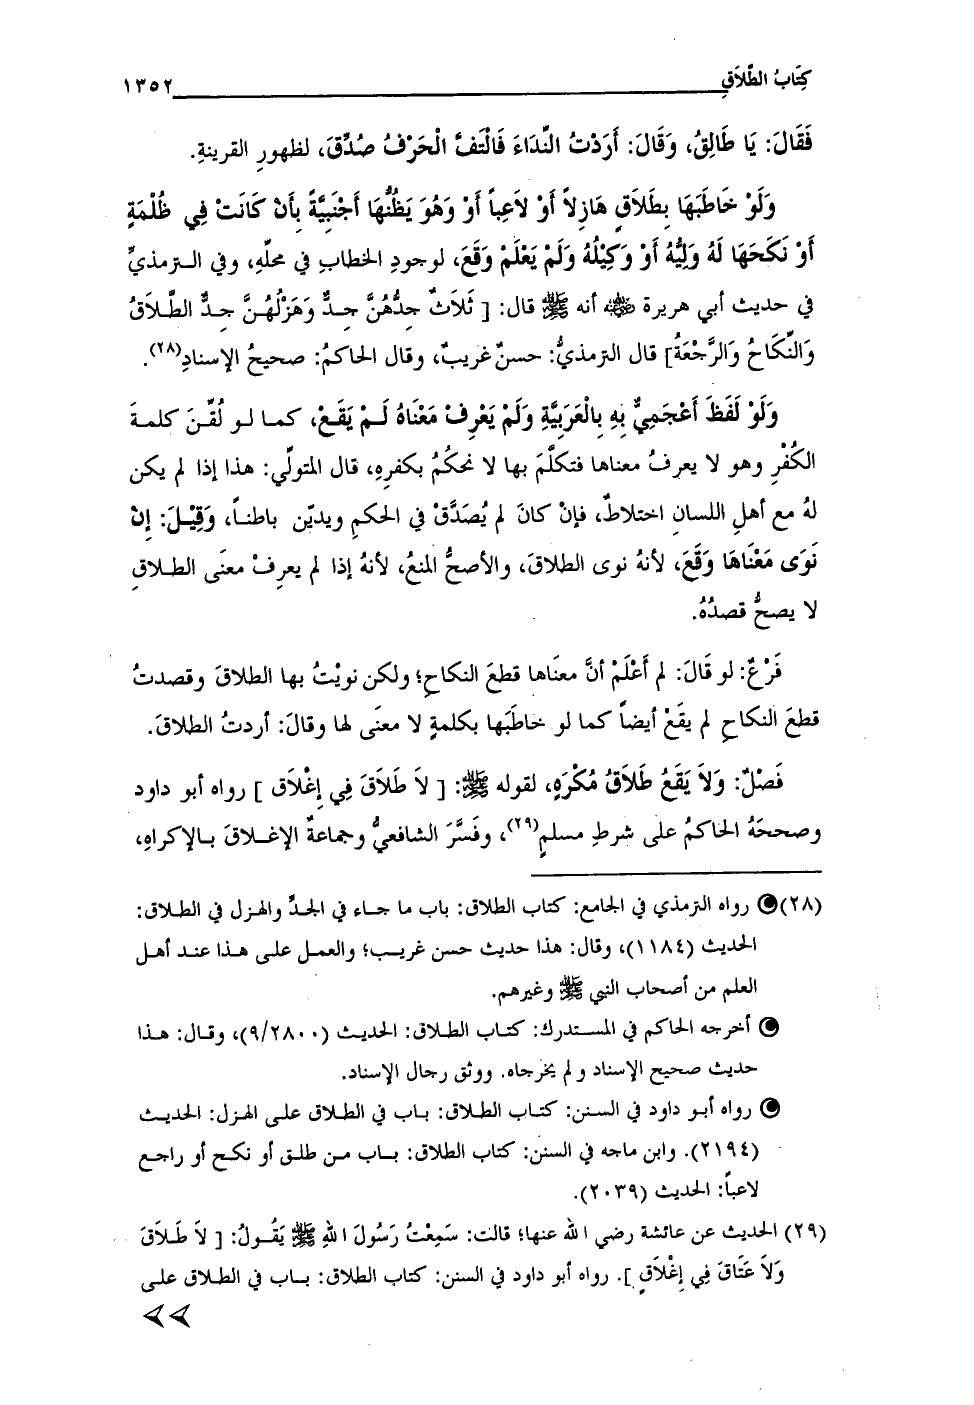 كِتَابُ الطَّلَاقِ ١٣٥٢
فَقَالَ: يَا طَالِقُ، وَقَالَ: أَرَدْتُ النِّدَاءَ فَالْتَفَّ الْحَرْفُ صُدِّقَ، لظهورِ القرينةِ.
وَلَوْ خَاطَبَهَا بِطَلَاقٍ هَازِلاً أَوْ لَاعِباً أَوْ وَهُوَ يَظُنُّهَا أَجْنَبِيَّةً بِأَنْ كَانَتْ فِي ظُلْمَةٍ
أَوْ نَكَحَهَا لَهُ وَلِيُّهُ أَوْ وَكِيْلُهُ وَلَمْ يَعْلَمْ وَقَعَ، لوجودِ الخطابِ في محلّهِ، وفي الترمذيِّ
في حديث أبي هريرة ﷺ أنه ﷺ قال: [ ثَلَاثٌ جِدُّهُنَّ جِدٌّ وَهَزْلُهُنَّ جِدٌّ الطَّلَاقُ
وَالنِّكَاحُ وَالرَّجْعَةُ] قال الترمذيُّ: حسنٌ غريبٌ، وقال الحاكمُ: صحيحُ الإسنادِ(٢٨).
وَلَوْ لَفَظَ أَعْجَمِيٌّ بِهِ بِالْعَرَبِيَّةِ وَلَمْ يَعْرِفْ مَعْنَاهُ لَمْ يَقَعْ، كما لو لُقِّنَ كلمةَ
الكُفْرِ وهو لا يعرفُ معناها فتكلَّمَ بها لا نحكُمُ بكفرِهِ، قال المتولّي: هذا إذا لم يكن
لهُ مع أهلِ اللسانِ اختلاطٌ، فإنْ كانَ لم يُصَدَّقْ في الحكمِ ويديّن باطناً، وَقِيْلَ: إِنْ
نَوَى مَعْنَاهَا وَقَعَ، لأنهُ نوى الطلاقَ، والأصحُّ المنعُ، لأنهُ إذا لم يعرِفْ معنَى الطلاقِ
لا يصحُّ قصدُهُ.
فَرْعٌ: لو قَالَ: لم أَعْلَمْ أنَّ معنَاها قطعَ النكاحِ؛ ولكن نويْتُ بها الطلاقَ وقصدتُ
قطعَ النكاحِ لم يقَعْ أيضاً كما لو خاطَبَها بكلمةٍ لا معنَى لها وقالَ: أردتُ الطلاقَ.
فَصْلٌ: وَلَا يَقَعُ طَلَاقُ مُكْرَهٍ، لقوله ﷺ: [ لَا طَلَاقَ فِي إِغْلَاقٍ ] رواه أبو داود
وصححَهُ الحاكمُ على شرطِ مسلمٍ(٢٩)، وفَسَّرَ الشافعيُّ وجماعةٌ الإغلاقَ بالإكراهِ،
(٢٨) رواه الترمذي في الجامع: كتاب الطلاق: باب ما جاء في الجدِّ والهزل في الطلاق:
الحديث (١١٨٤)، وقال: هذا حديث حسن غريب؛ والعمل على هذا عند أهل
العلم من أصحاب النبي ﷺ وغيرهم.
أخرجه الحاكم في المستدرك: كتاب الطلاق: الحديث (٩/٢٨٠٠)، وقال: هذا
حديث صحيح الإسناد ولم يخرجاه. ووثق رجال الإسناد.
رواه أبو داود في السنن: كتاب الطلاق: باب في الطلاق على الهزل: الحديث
(٢١٩٤). وابن ماجه في السنن: كتاب الطلاق: باب من طلق أو نكح أو راجع
لاعباً: الحديث (٢٠٣٩).
(٢٩) الحديث عن عائشة رضي الله عنها؛ قالت: سَمِعْتُ رَسُولَ اللهِ ﷺ يَقُولُ: [ لَا طَلَاقَ
وَلَا عَتَاقَ فِي إِغْلَاقٍ ]. رواه أبو داود في السنن: كتاب الطلاق: باب في الطلاق على